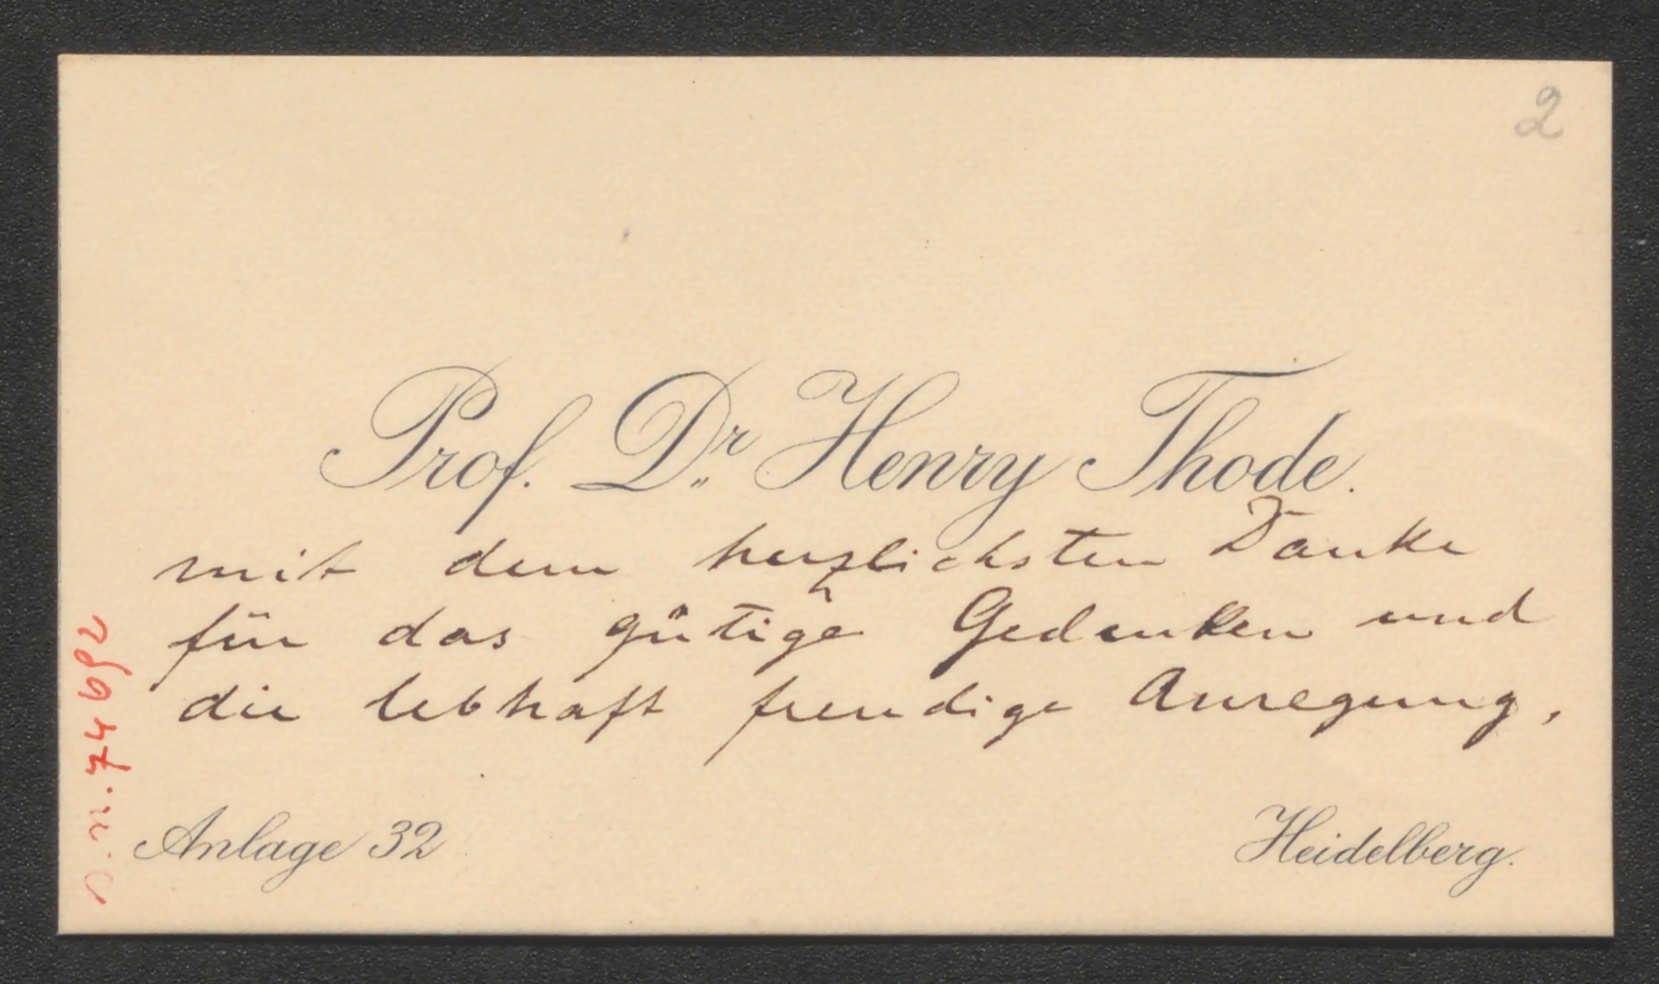 2
Prof. Dr. Henry Thode.
mit dem herzlichsten Danke
für das gütige Gedenken und
die lebhaft freudige Anregung,
Anlage 32
Heidelberg.